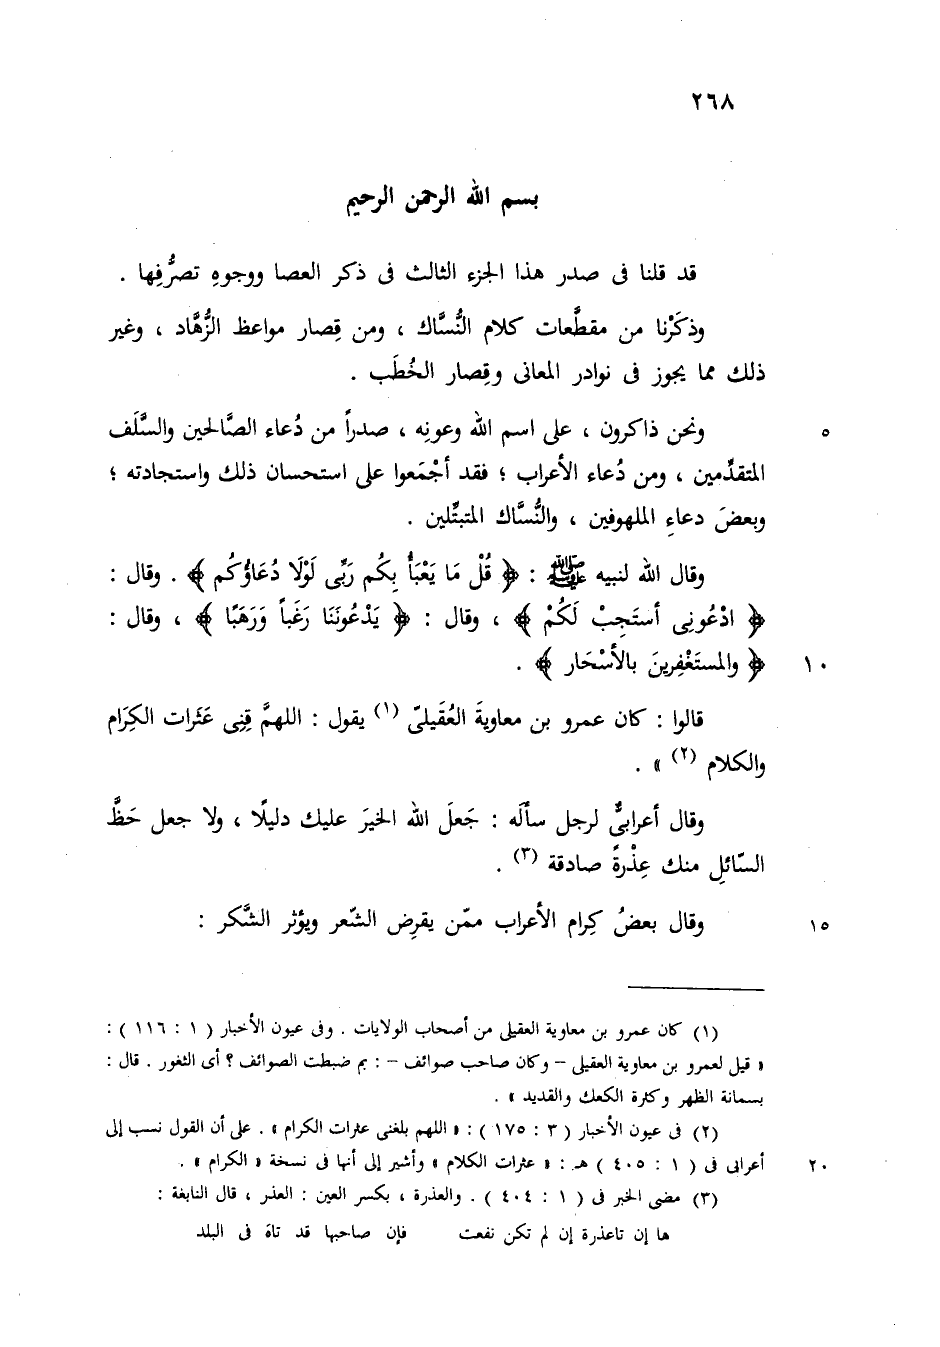 ٢٦٨
بسم الله الرحمن الرحيم
قد قلنا فى صدر هذا الجزء الثالث فى ذكر العصا ووجوهِ تصرُّفِها .
وذكَرْنا من مقطَّعات كلام النُّسَّاك ، ومن قِصار مواعظ الزُّهَّاد ، وغير
ذلك مما يجوز فى نوادر المعانى وقِصار الخُطَب .
ونحن ذاكرون ، على اسم الله وعونِه ، صدراً من دُعاء الصَّالحين والسَّلَف ٥
المتقدِّمين ، ومن دُعاء الأعراب ؛ فقد أجْمَعوا على استحسان ذلك واستجادته ؛
وبعضَ دعاءِ الملهوفين ، والنُّسَّاك المتبتِّلين .
وقال الله لنبيه ﷺ : ﴿ قُلْ مَا يَعْبَأُ بِكُم رَبِّى لَوْلَا دُعَاؤُكُم ﴾ . وقال :
﴿ ادْعُونِى أستَجِبْ لَكُمْ ﴾ ، وقال : ﴿ يَدْعُونَنَا رَغَباً وَرَهَبًا ﴾ ، وقال :
﴿ والمستَغْفِرِينَ بالأسْحَار ﴾ . ١٠
قالوا : كان عمرو بن معاويةَ العُقَيلىّ (١) يقول : اللهمَّ قِنِى عَثَرات الكِرَام
والكلام (٢) » .
وقال أعرابىٌّ لرجل سألَه : جَعلَ الله الخيرَ عليك دليلًا ، ولا جعل حَظَّ
السّائلِ منك عِذْرةً صادقة (٣) .
وقال بعضُ كِرام الأعراب ممّن يقرِض الشّعر ويؤثر الشَّكر : ١٥
(١) كان عمرو بن معاوية العقيلى من أصحاب الولايات . وفى عيون الأخبار ( ١ : ١١٦ ) :
« قيل لعمرو بن معاوية العقيلى – وكان صاحب صوائف – : بم ضبطت الصوائف ؟ أى الثغور . قال :
بسمانة الظهر وكثرة الكعك والقديد » .
(٢) فى عيون الأخبار ( ٣ : ١٧٥ ) : « اللهم بلغنى عثرات الكرام » . على أن القول نسب إلى
أعرابى فى ( ١ : ٤٠٥ ) هـ : « عثرات الكلام » وأشير إلى أنها فى نسخة « الكرام » . ٢٠
(٣) مضى الخبر فى ( ١ : ٤٠٤ ) . والعذرة ، بكسر العين : العذر ، قال النابغة :
ها إن تاعذرة إن لم تكن نفعت فإن صاحبها قد تاهَ فى البلد